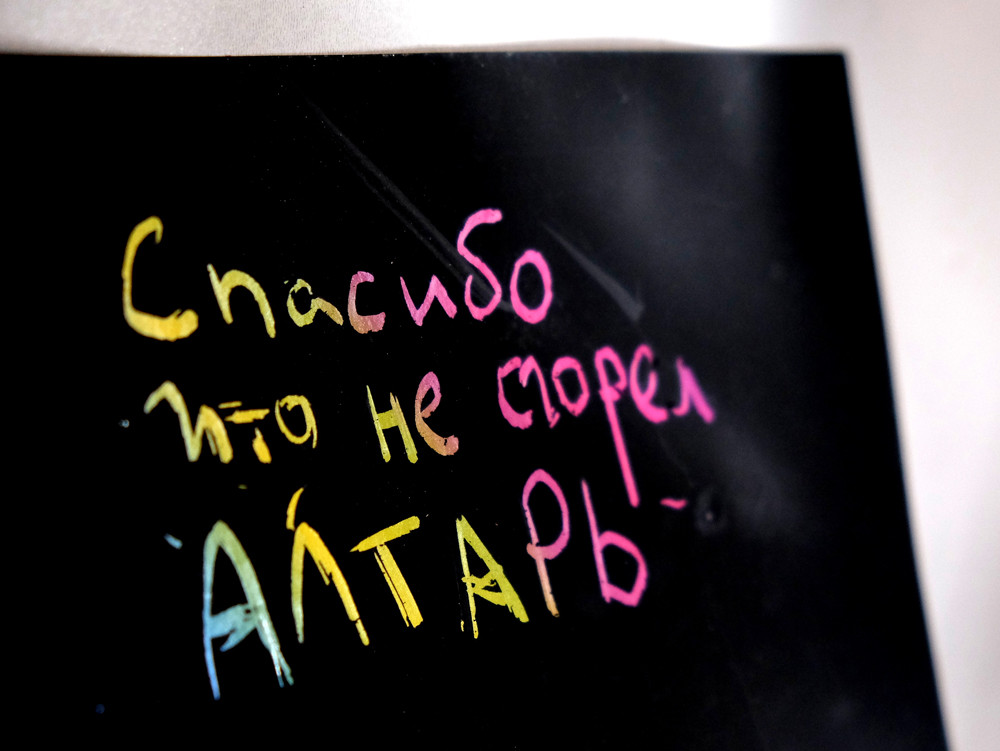 Спасибо
что не сгорел
АЛТАРЬ